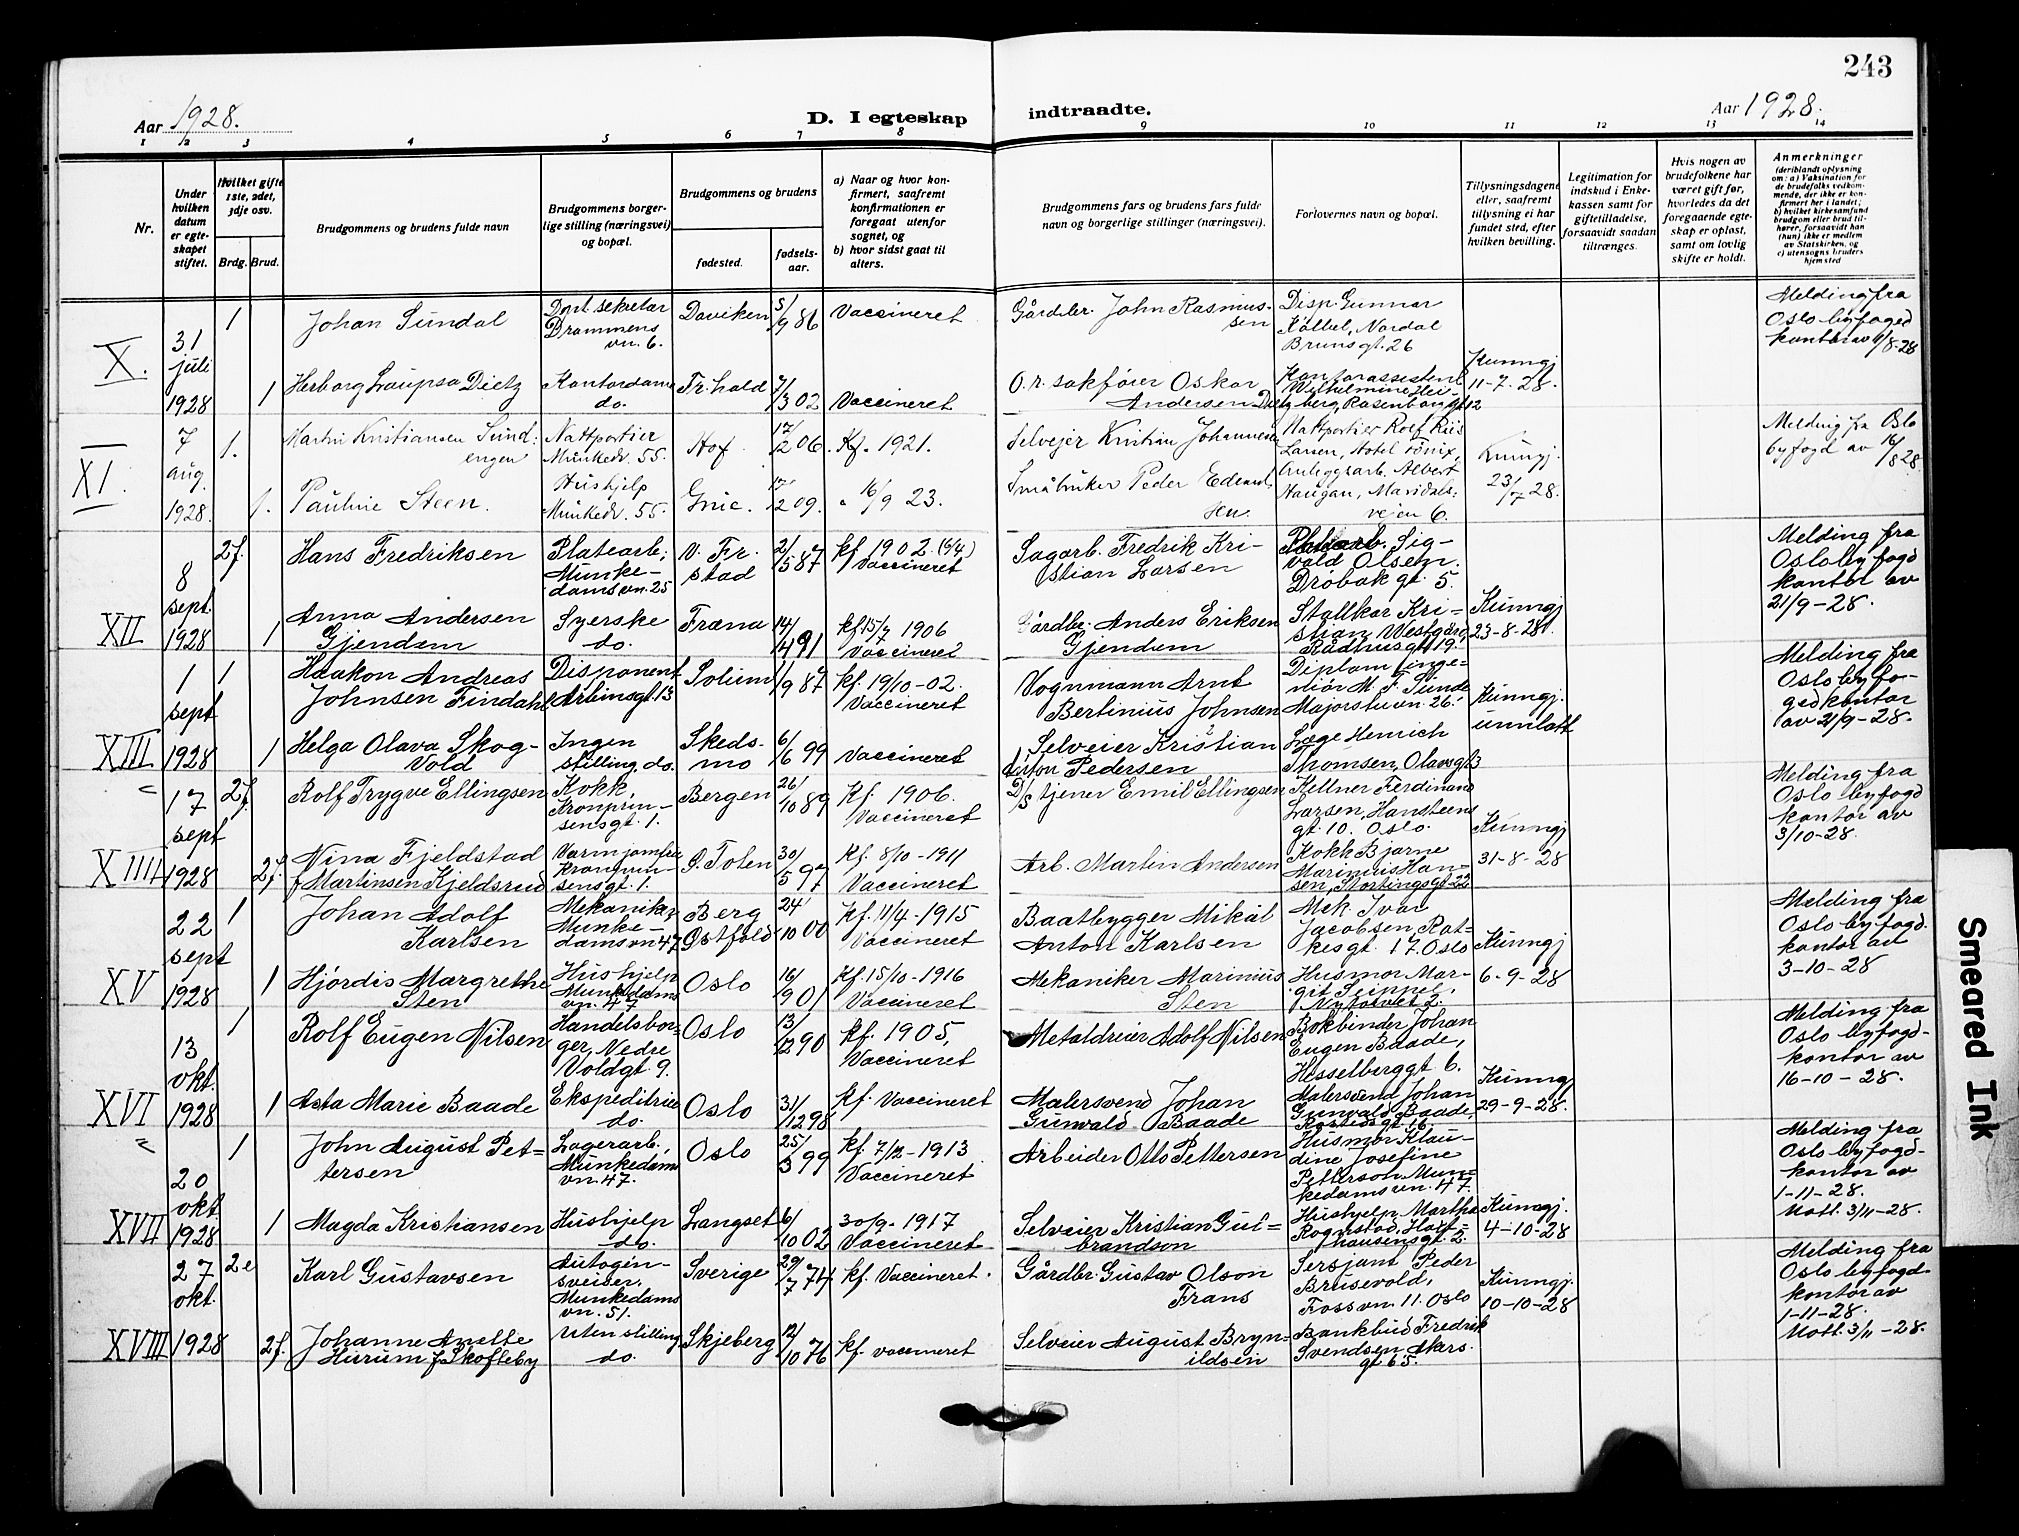 243
Aar 1928.
D. I egteskap
indtraadte.
Aar 1928.
1 2 3 4 5 6 7 8 9 10 11 12 13 14
Nr.
Under
hvilken
datum
er egte-
skapet
stiftet.
Hvilket gifte
1ste, 2det,
3dje osv.
Brdg. Brud.
Brudgommens og brudens fulde navn
Brudgommens borger-
lige stilling (næringsvei)
og bopæl.
Brudgommens og brudens
fødested.
fødsels-
aar.
a) Naar og hvor kon-
firmert, saafremt
konfirmationen er
foregaat utenfor
sognet, og
b) hvor sidst gaat til
alters.
Brudgommens fars og brudens fars fulde
navn og borgerlige stillinger (næringsvei).
Forlovernes navn og bopæl.
Tillysningsdagene
eller, saafremt
tillysning ei har
fundet sted, efter
hvilken bevilling.
Legitimation for
indskud i Enke-
kassen samt for
giftetilladelse,
forsaavidt saadan
tiltrænges.
Hvis nogen av
brudefolkene har
været gift før,
hvorledes da det
foregaaende egte-
skap er opløst,
samt om lovlig
skifte er holdt.
Anmerkninger
(deriblandt oplysning
om: a) Vaksination for
de brudefolks vedkom-
mende, der ikke er kon-
firmert her i landet;
b) hvilket kirkesamfund
brudgom eller brud til-
hører, forsaavidt han
(hun) ikke er medlem
av Statskirken, og
c) utensogns bruders
hjemsted
X.
31
juli
1928
1
Johan Sundal
sekretær
Drammens
vn. 6.
Daviken
5/9 86
Vaccineret
Gårdbr. John Rasmus-
sen
Disp. Gunnar
Kölbel, Nordal
Brunsgt. 26
Melding fra
Oslo byfoged
kontor av /8-28
1
Herborg Laupsa Dietz
Kontordame
do.
Fr.hald
/3 02
Vaccineret
O.r. sakfører Oskar
Andersen
Kontorassistent
Wilhelmine
berg, Rosenborggt 12
Kunngj
11-7. 28.
XI.
7
aug.
1928.
1.
Martin Kristiansen Sund-
engen
Nattportier
Munkedv. 55.
Hof
12/2 06
Kf. 1921.
Selveier Kristian Johannesen
Nattportier Rolf Riis
Larsen, Hotel Fönix,
Melding fra Oslo
byfogd av 16/8 28.
1.
Pauline Steen.
Hushjelp
Munkedv. 55.
Grue.
/2 09.
" 16/9 23.
Småbruker Peder Edvard
Sten.
Anleggsarb. Albert
Haugan, Maridals-
veien 6.
Kungj.
23/7 28.
XII
8
sept.
1928
2f.
Hans Fredriksen
Platearb.,
Munke-
damsvn. 25
V. Fr.
stad
2/5 87
kf 1902. (6/4)
Vaccineret
Sagarb. Fredrik Kri-
stian Larsen
Platearb. Sig-
vald Olsen.
Drøbak gt. 5.
Melding fra
Oslo byfogd
kontor av
21/9-28.
1
Anna Andersen
Gjendem
Syerske
do.
Fræna
14/4 91
kf 15/7 1906
Vaccineret
Gårdbr. Anders Eriksen
Gjendem
Stallkar Kri-
stian Westgård
Rådhusgt 19.
Kunngj
23-8-28.
XIII
1
sept
1928
1
Haakon Andreas
Johnsen Findahl
Disponent
Arbinsgt. 13
Solum
1/9 87
kf. 19/10-02.
Vaccineret
Vognmann Arnt
Bertinius Johnsen
Diplom inge-
niør M. F. Sunde
Majorstuvn. 26.
Kunngj.
unnlatt
Melding fra
Oslo byfo-
ged kontor
av 21/9-28.
1
Helga Olava Skog-
vold
Ingen
stilling. do.
Skeds-
mo
6/6 99
Vaccineret
Selveier Kristian
Anton Pedersen
Læge Henrich
Thomsen, Olavsgt 3
XIIII
17
sept
1928
2f.
Rolf Trygve Ellingsen
Kokk,
Kronprin-
sensgt. 1.
Bergen
26/10 89
Kf. 1906.
Vaccineret
D/S tjener Emil Ellingsen
Kellner Ferdinand
Larsen, Hansteens
gt. 10. Oslo.
Melding fra
Oslo byfogd
kontor av
3/10-28.
2f.
Nina Fjeldstad
f Martinsen Kjeldsrud
Varmjomfru
Kronprin-
sensgt. 1.
Ø. Toten
30/5 97
Kf. 8/10-1911
Vaccineret
Arb. Martin Andersen
Kokk Bjarne
Marinius Han-
sen, Stortingsgt 22
Kunngj
31-8-28
XV
22
sept
1928
1
Johan Adolf
Karlsen
Mekaniker
Munke-
damsvn 47
Berg
Østfold
24/10 00
Kf. 11/4-1915
Vaccineret
Baatbygger Mikal
Anton Karlsen
Mek. Ivar
Jacobsen, Rat-
kesgt. 17. Oslo
Melding fra
Oslo byfogd.
kontor av
3-10-28
1
Hjørdis Margrethe
Sten
Hushjelp
Munkedams
vn. 47
Oslo
16/9 01
Kf. 15/10-1916
Vaccineret
Mekaniker Marinius
Sten
Husmor Mar-
git Seippel,
Nytorvet 2.
Kunngj
6-9-28
XVI
13
okt.
1928
1
Rolf Eugen Nilsen
Handelsbor-
ger, Nedre
Voldgt. 9.
Oslo
13/12 90
kf. 1905,
Vaccineret
Metaldreier Adolf Nilsen
Bokbinder Johan
Eugen Baade,
Hesselberggt 6.
Melding fra
Oslo byfogd-
kontor av
16-10-28.
1
Asta Marie Baade
Ekspeditrice
do.
Oslo
31/12 98
kf. Vaccineret
Malersvend Johan
Gunvald Baade
Malersvend Johan
Gunvald Baade
Kunngj
29-9-28.
XVII
20
okt
1928
1
John August Pet-
tersen
Lagerarb.,
Munkedams
vn. 47.
Oslo
25/3 99
kf. 7/12-1913
Vaccineret
Arbeider Otto Pettersen
Husmor Klau-
dine Josefine
Petterson, Mun-
kedamsvn. 47.
Melding fra
Oslo byfogd-
kontor av
1-11-28.
Mott. 3/11-28.
1
Magda Kristiansen
Hushjelp
do.
Langset
6/10 02
30/9-1917
Vaccineret
Selveier Kristian Gul-
brandson
Hushjelp Martha
Rognstad,
hausensgt. 2.
Kunngj.
4-10-28
XVIII
27
okt.
1928
2e
Karl Gustavsen
Autogen-
sveiser,
Munkedams
vn. 51.
Sverige
29/7 74
kf. Vaccineret.
Gårdbr. Gustav Olson
Frans
Sersjant Peder
Brusevold,
Fossvn. 11. Oslo
Kunngj.
10-10-28
Melding fra
Oslo byfogd-
kontor av
1-11-28.
Mott. 3/11-28.
2f.
Johanne Anette
Hurum f Skofteby
Uten stilling
do.
Skjeberg
12/10 76
kf. vaccineret
Selveier August Bryn-
ildsen
Bankbud Fredrik
Svendsen Akers
gt 65.
Smeared Ink